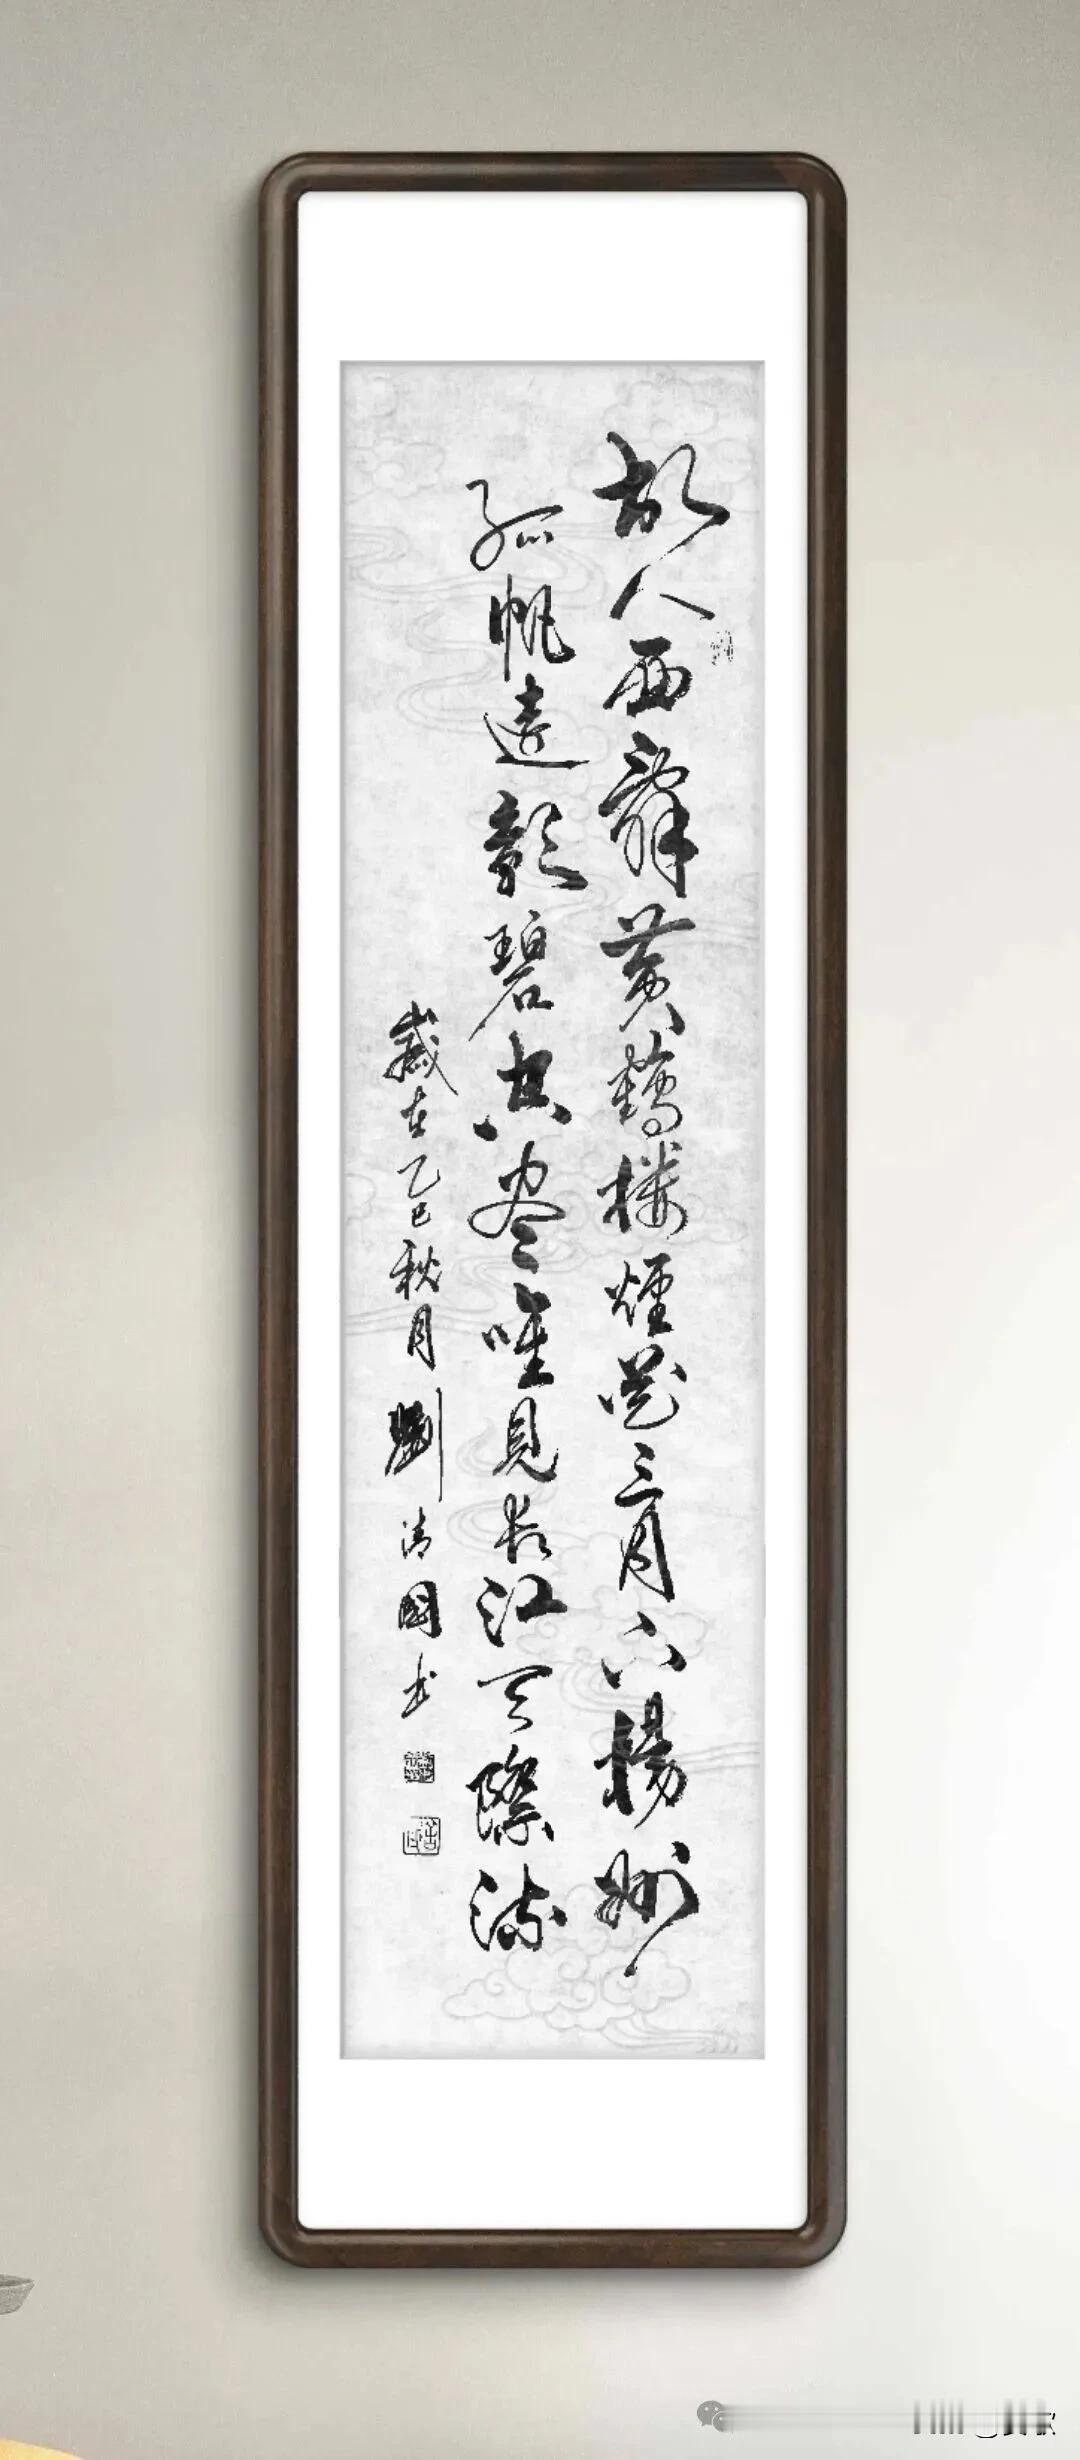 故人西辞黄鹤楼烟花三月下揚州
孤帆遠影碧空尽唯見长江天際流
歲在乙巳秋月劉清國书